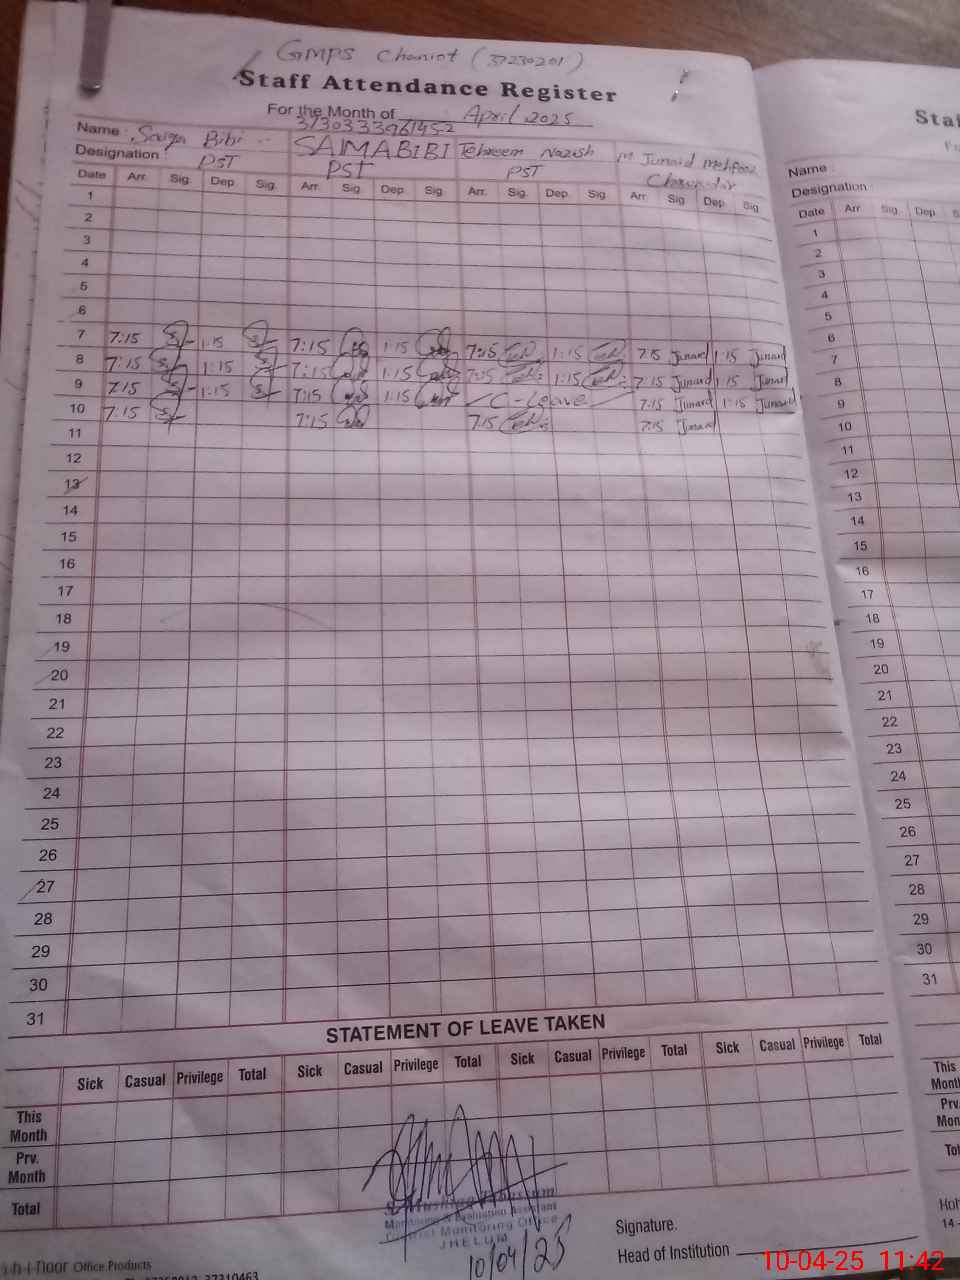 GMPS Chaniot (37230201)
Staff Attendance Register
For the Month of April, 2025
3730333961452
Name : Saiqa Bibi SAIMA BIBI Tehreem Nazish M Junaid Mehfooz
Designation : PST PST PST Chowkidar
Date Arr. Sig. Dep. Sig. Arr. Sig. Dep. Sig. Arr. Sig. Dep. Sig. Arr. Sig. Dep. Sig.
1
2
3
4
5
6
7 7:15 1:15 7:15 1:15 7:15 1:15 7:15 Junaid 1:15 Junaid
8 7:15 1:15 7:15 1:15 7:15 1:15 7:15 Junaid 1:15 Junaid
9 7:15 1:15 7:15 1:15 C-Leave 7:15 Junaid 1:15 Junaid
10 7:15 7:15 7:15 7:15 Junaid
11
12
13
14
15
16
17
18
19
20
21
22
23
24
25
26
27
28
29
30
31
STATEMENT OF LEAVE TAKEN
Sick Casual Privilege Total Sick Casual Privilege Total Sick Casual Privilege Total Sick Casual Privilege Total
This Month
Prv. Month
Total
Monitoring & Evaluation Assistant
District Monitoring Office
JHELUM
10/04/25
Signature.
Head of Institution
Office Products
37310463
10-04-25 11:42
Name :
Designation :
Date Arr. Sig. Dep.
1
2
3
4
5
6
7
8
9
10
11
12
13
14
15
16
17
18
19
20
21
22
23
24
25
26
27
28
29
30
31
This